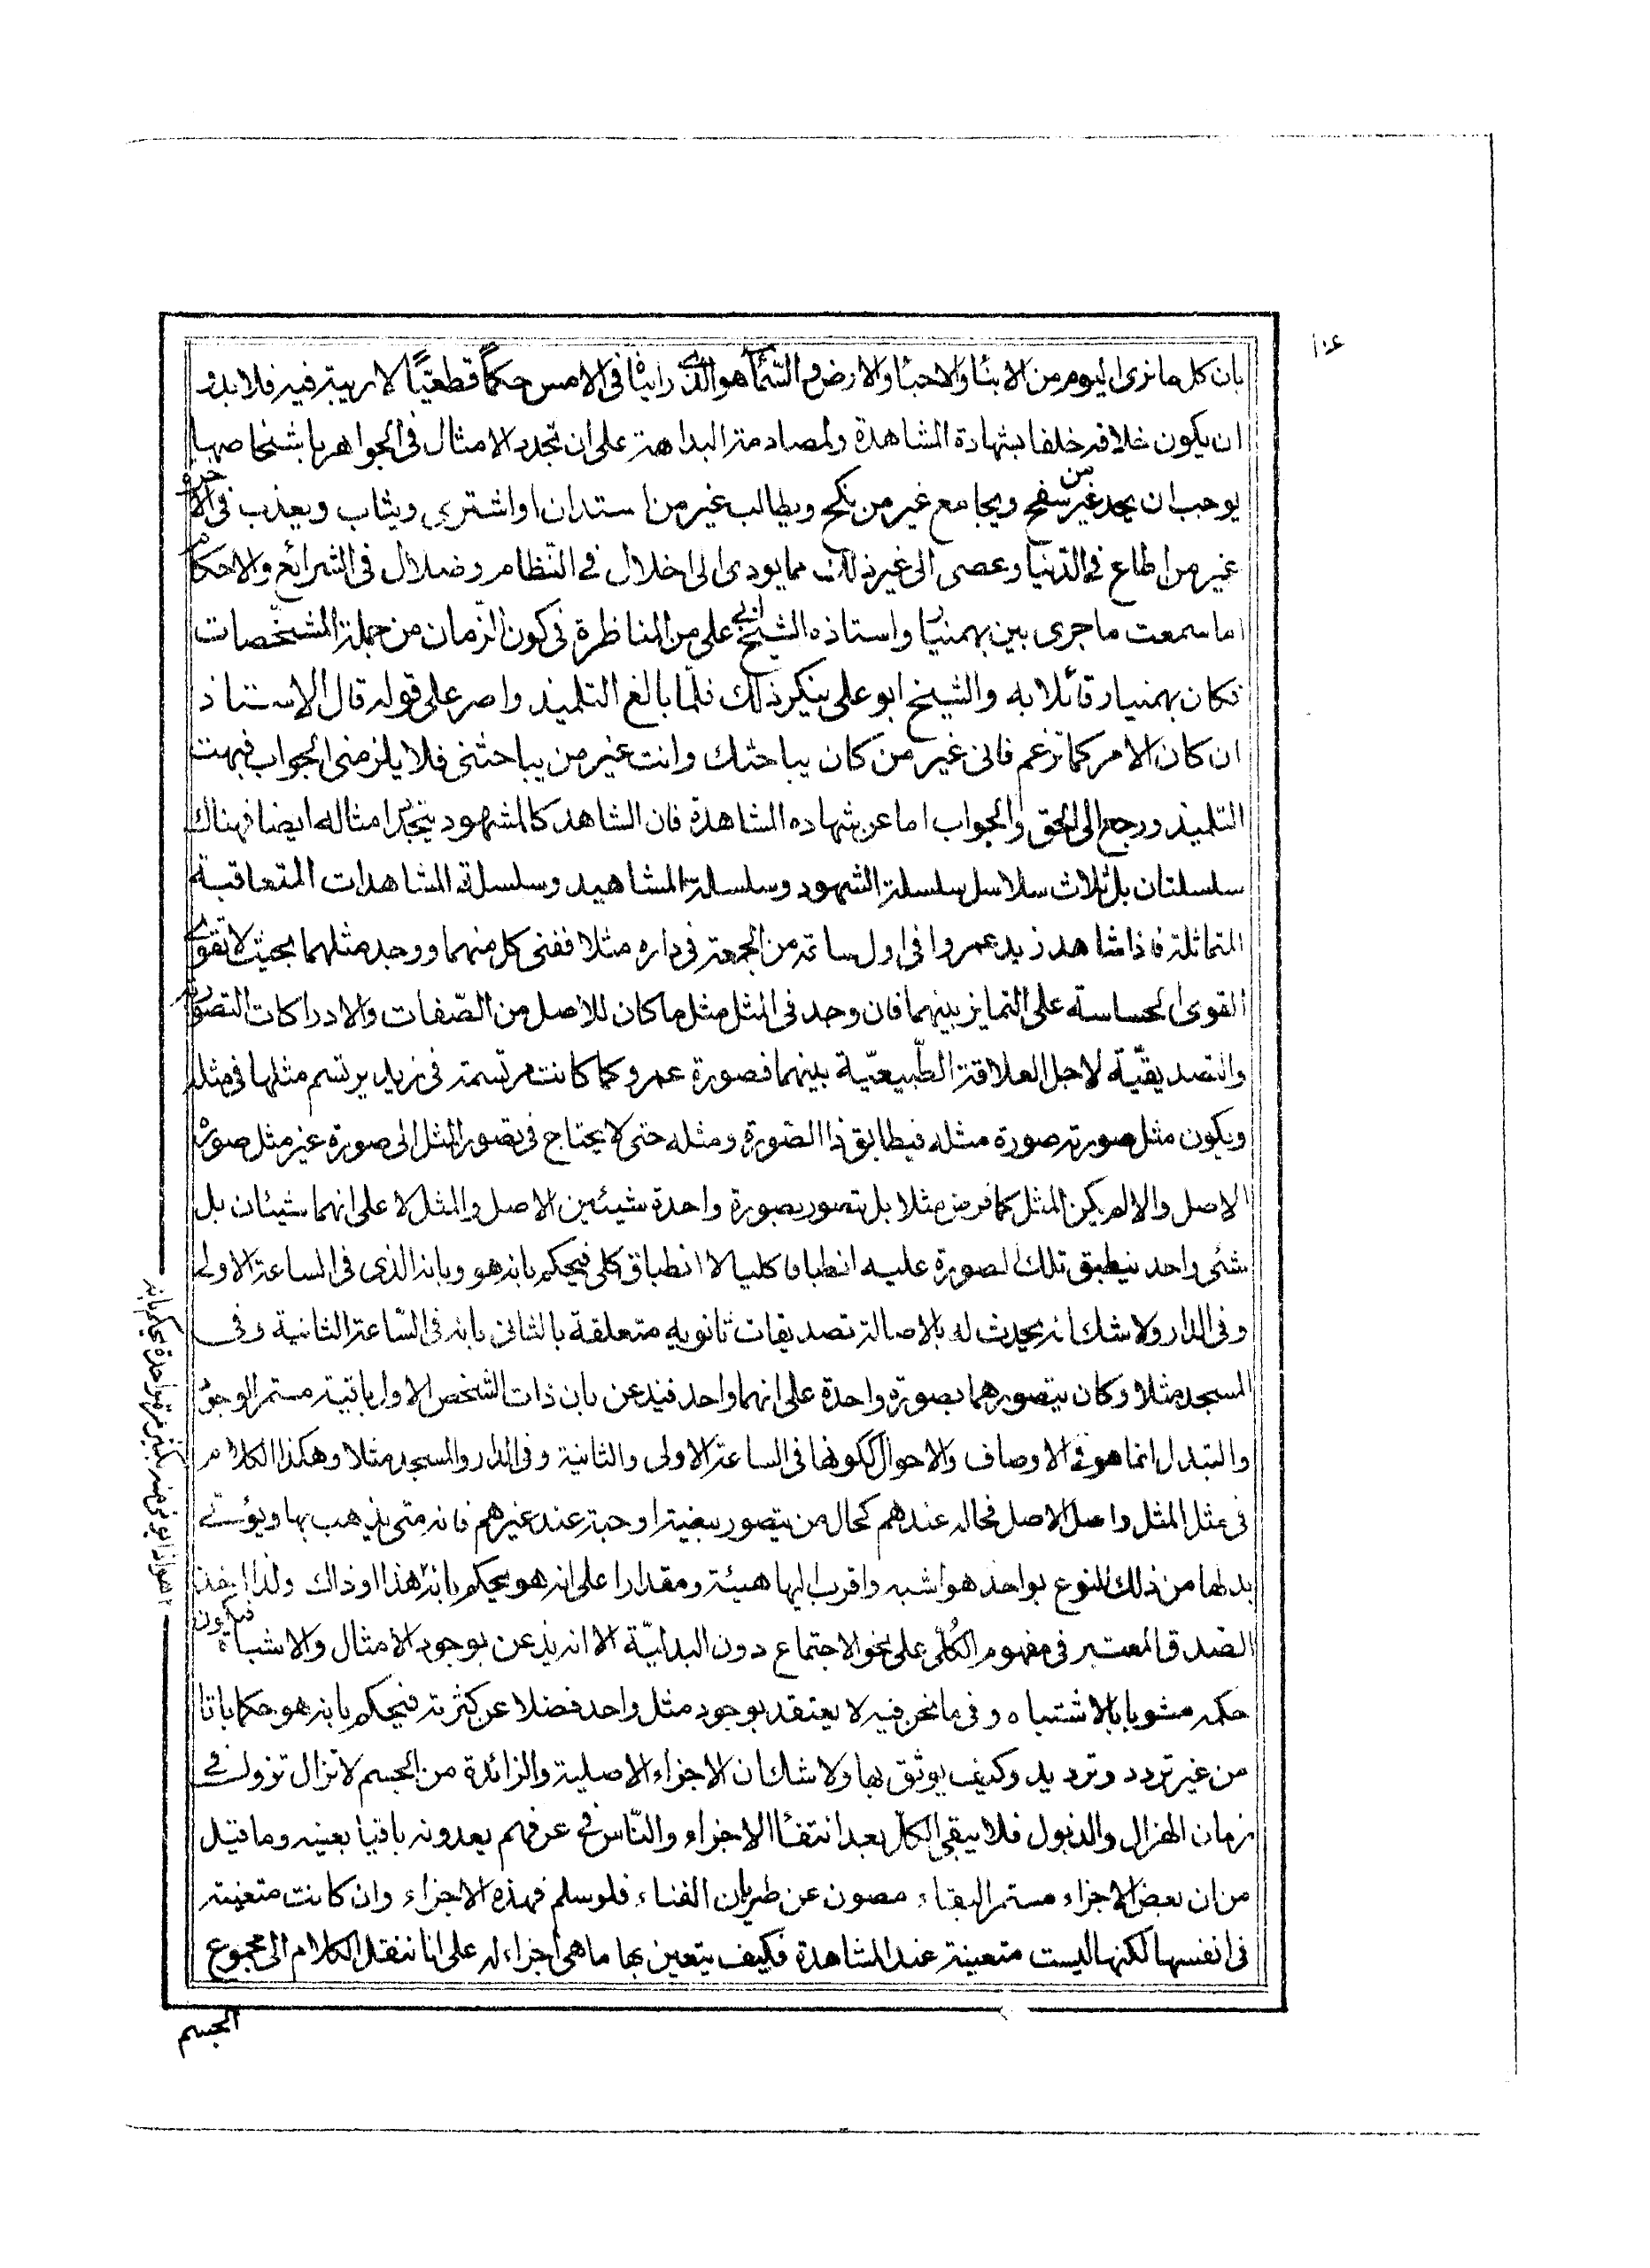 ١٠٤
بان كل ما نرى اليوم من الابناء والاحباء والارض والسماء هو الذى رايناه فى الامس حكماً قطعيّاً لا ريبة فيه فلا بد و
ان يكون خلافه خلفا بشهادة المشاهدة ولمصادمة البداهة على ان تجدد الامثال فى الجواهر باشخاصها
يوجب ان يحد غير من سفح ويجامع غير من نكح ويطالب غير من استدان او اشترى ويثاب ويعذب فى الاخرة
غير من اطاع فى الدّنيا وعصى الى غير ذلك مما يودى الى اخلال فى النّظام وضلال فى الشرائع والاحكام
اما سمعت ما جرى بين بهمنيار واستاذه الشيخ ابى على من المناظرة فى كون الزّمان من جملة المشخّصات
فكان بهمنيار قائلا به والشيخ ابو على ينكر ذلك فلما بالغ التلميذ واصر على قوله قال الاستاذ
ان كان الامر كما تزعم فانى غير من كان يباحثك وانت غير من يباحثنى فلا يلزمنى الجواب فبهت
التلميذ ورجع الى الحق والجواب اما عن شهاده المشاهدة فان الشاهد كالمشهود يتجدد امثاله ايضا فهناك
سلسلتان بل ثلاث سلاسل سلسلة الشهود وسلسلة المشاهيد وسلسلة المشاهدات المتعاقبة
المتماثلة فاذا شاهد زيد عمروا فى اول ساعة من الجمعة فى داره مثلا ففنى كل منهما ووجد مثلهما بحيث لا تقوى
القوى الحساسة على التمايز بينهما فان وجد فى المثل مثل ما كان للاصل من الصّفات والادراكات التصورية
والتصديقيّة لاجل العلاقة الطّبيعيّة بينهما فصورة عمرو كما كانت مرتسمة فى زيد يرتسم مثلها فى مثله
ويكون مثل صورته صورة مثله فيطابق ذا الصّورة ومثله حتى لا يحتاج فى تصور المثل الى صورة غير مثل صورة
الاصل والا لم يكن المثل كما فرض مثلا بل يتصور بصورة واحدة شيئين الاصل والمثل لا على انهما شيئان بل
شئ واحد ينطبق تلك الصورة عليه انطباقا كليا لا انطباق كلى فيحكم بانه هو وبانه الذى فى الساعة الاولى
وفى الدار ولا شك انه يحدث له بالاصالة تصديقات ثانويه متعلقة بالثانى بانه فى السّاعة الثانية وفى
المسجد مثلا وكان يتصورهما بصورة واحدة على انهما واحد فيذعن بان ذات الشخص الاول باقية مستمر الوجود
والتبدل انما هو فى الاوصاف والاحوال ككونها فى الساعة الاولى والثانية وفى الدار والمسجد مثلا وهكذا الكلام
فى مثل المثل واصل الاصل فحاله عندهم كحال من يتصور بيضة او حبة عند غيرهم فانه متى يذهب بها ويؤتى
بدلها من ذلك النوع بواحد هو اشبه واقرب اليها هيئة ومقدارا على انه هو يحكم بانه هذا او ذاك ولذا اخذ
الصدق المعتبر فى مفهوم الكُلّى على نحو الاجتماع دون البدليّة الا انه يذعن بوجود الامثال والاشباه فيكون
حكمه مشوبا بالاشتباه وفى ما نحن فيه لا يعتقد بوجود مثل واحد فضلا عن كثرته فيحكم بانه هو حكما باتا
من غير تردد وترديد وكيف يوثق بها ولا شك ان الاجزاء الاصلية والزائدة من الجسم لا تزال تزول فى
زمان الهزال والذبول فلا يبقى الكل بعد انتفاء الاجزاء والنّاس فى عرفهم يعدونه باقيا بعينه وما قيل
من ان بعض الاجزاء مستمر البقاء مصون عن طريان الفناء فلو سلم فهذه الاجزاء وان كانت متعينة
فى انفسها لكنها ليست متعينة عند المشاهدة فكيف يتعين بها ما هى اجزاء له على انا ننقل الكلام الى مجموع
الجسم
واحدة يحكم بانه